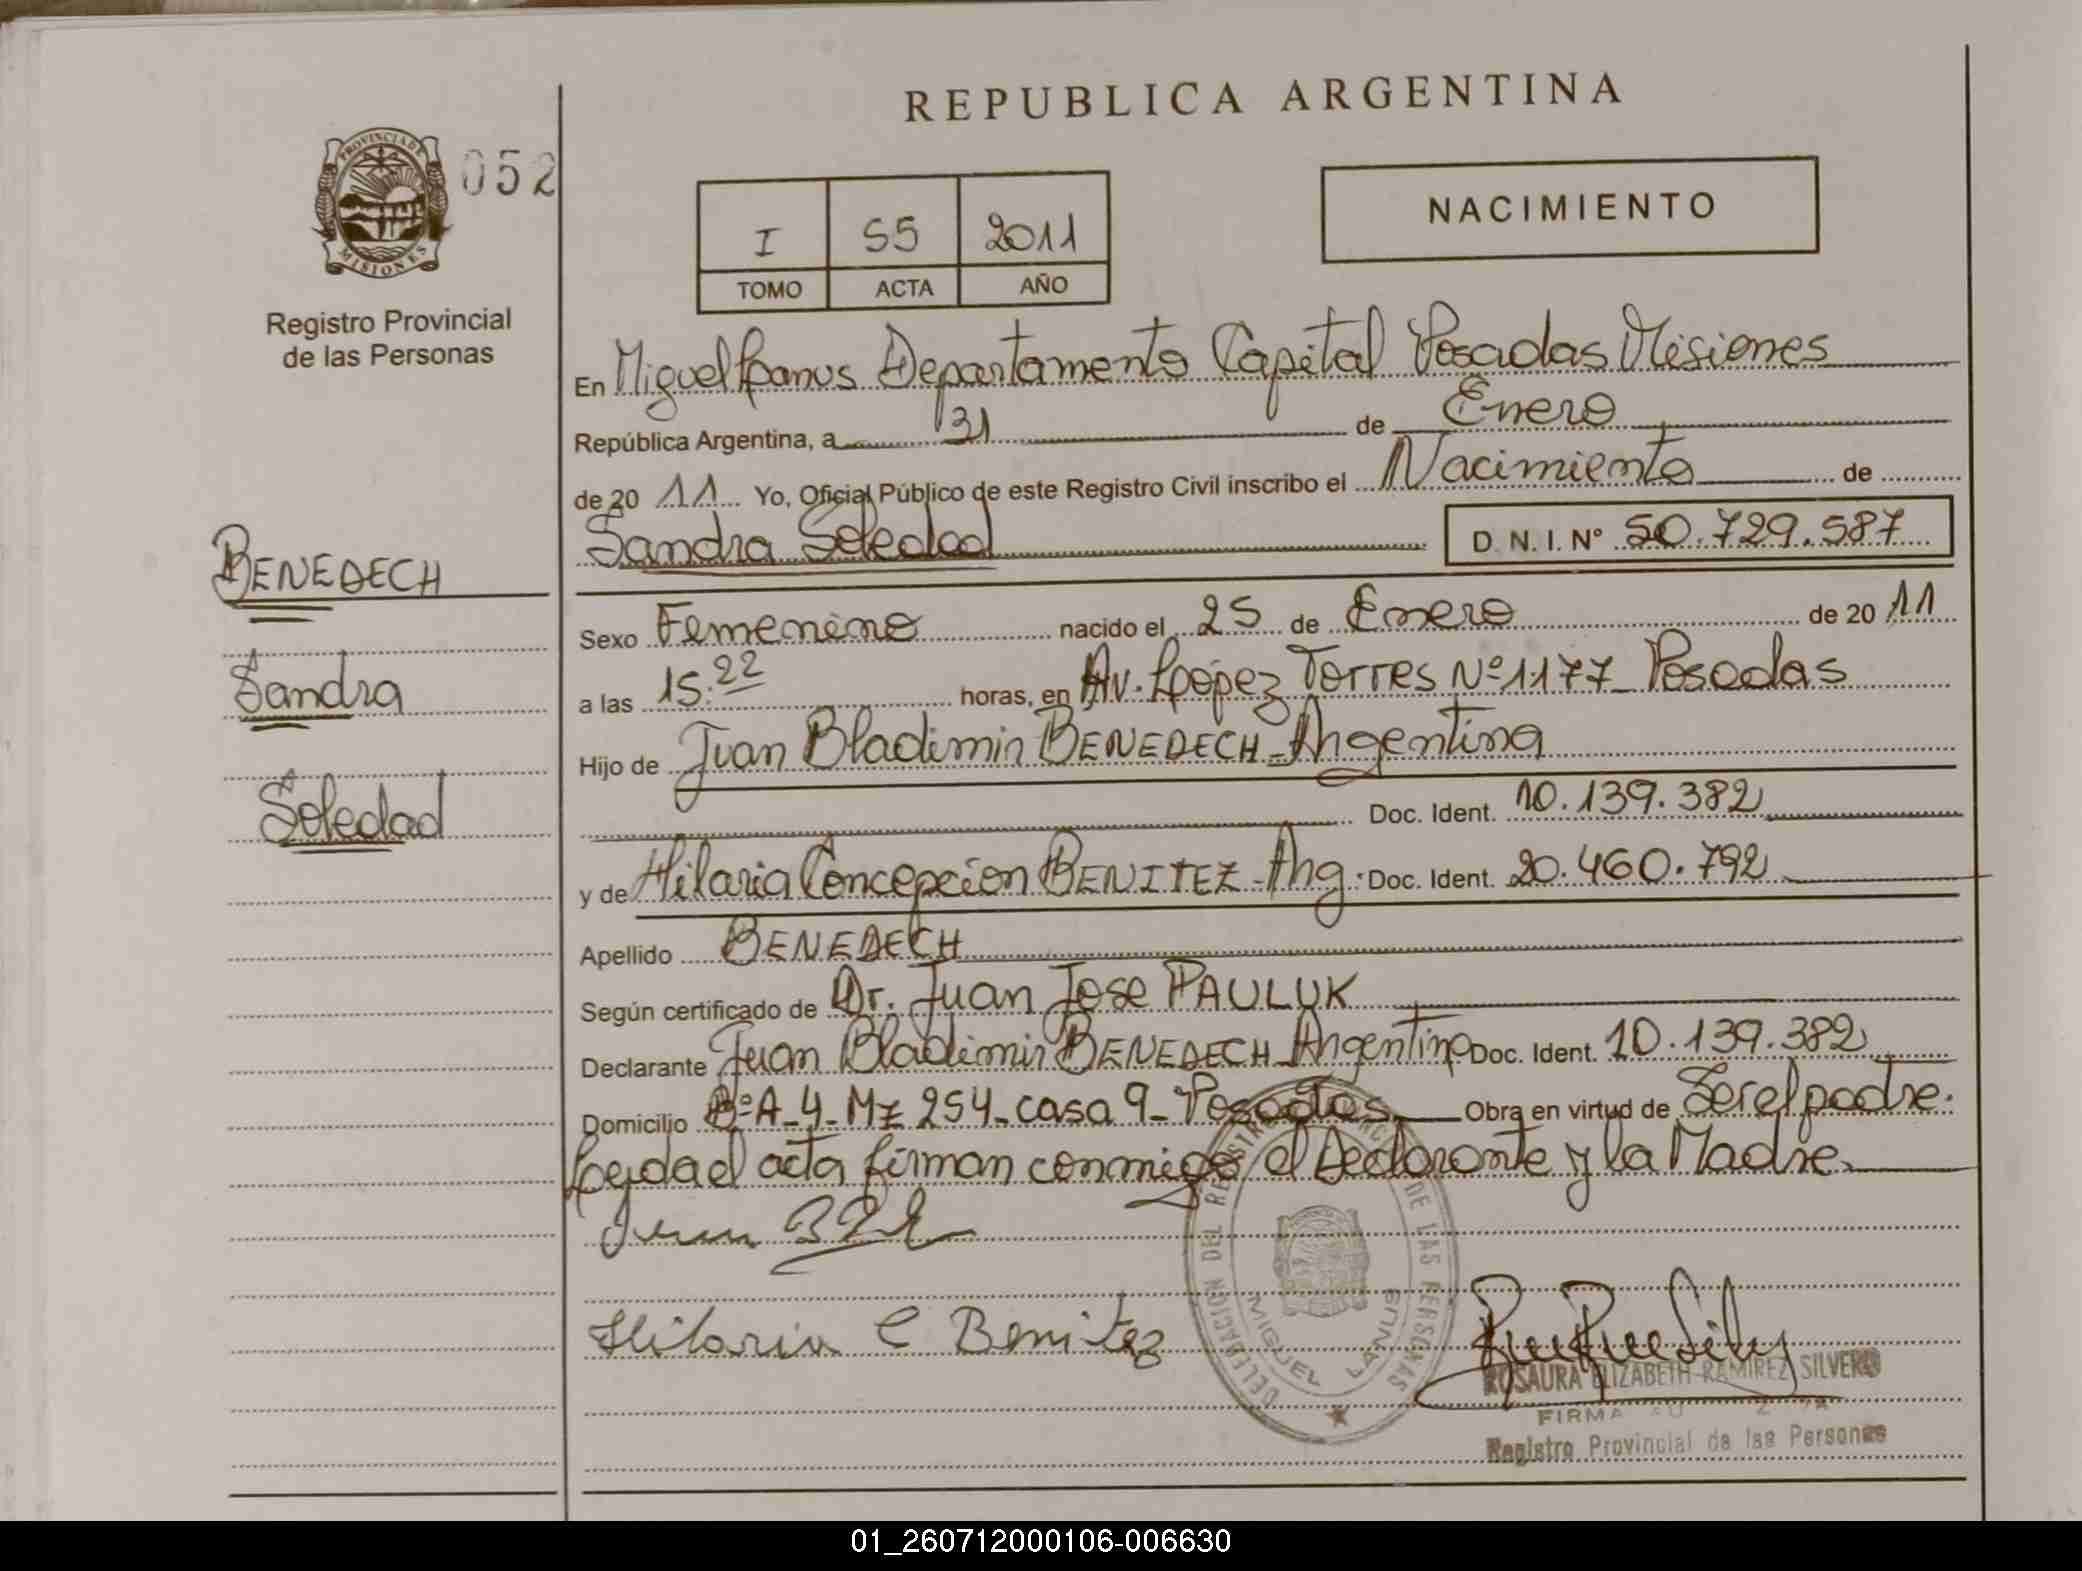 REPUBLICA ARGENTINA
PROVINCIA DE
MISIONES
052
Registro Provincial
de las Personas
I 55 2011
TOMO ACTA AÑO
NACIMIENTO
En Miguel Lanus Departamento Capital Posadas Misiones
República Argentina, a 31 de Enero
de 20 11 Yo, Oficial Público de este Registro Civil inscribo el Nacimiento de
Sandra Soledad D.N.I. Nº 50.729.587
BENEDECH
Sandra
Soledad
Sexo Femenino nacido el 25 de Enero de 20 11
a las 15:22 horas, en Av. Lopez Torres Nº 1177 Posadas
Hijo de Juan Bladimir BENEDECH - Argentina
Doc. Ident. 10.139.382
y de Hilaria Concepcion BENITEZ - Arg. Doc. Ident. 20.460.792
Apellido BENEDECH
Según certificado de Dr. Juan Jose PAULUK
Declarante Juan Bladimir BENEDECH Argentino Doc. Ident. 10.139.382
Domicilio Bº A-4- Mz 254- casa 9- Posadas Obra en virtud de Ser el padre.
Leida el acta firman conmigo el Declarante y la Madre.
Hilaria C Benitez
DELEGACION DEL REGISTRO PROVINCIAL DE LAS PERSONAS
MIGUEL LANUS
ROSAURA ELIZABETH RAMIREZ SILVERO
FIRMA
Registro Provincial de las Personas
01_260712000106-006630